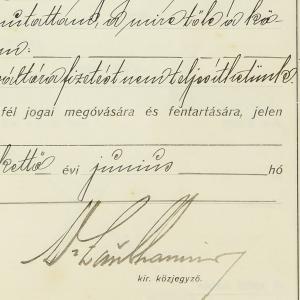 mutattam, a mire től a kö-
m:
váltóra fizetést nem teljesíthetünk.
fél jogai megóvására és fentartására, jelen
kettő évi junius hó
kir. közjegyző.